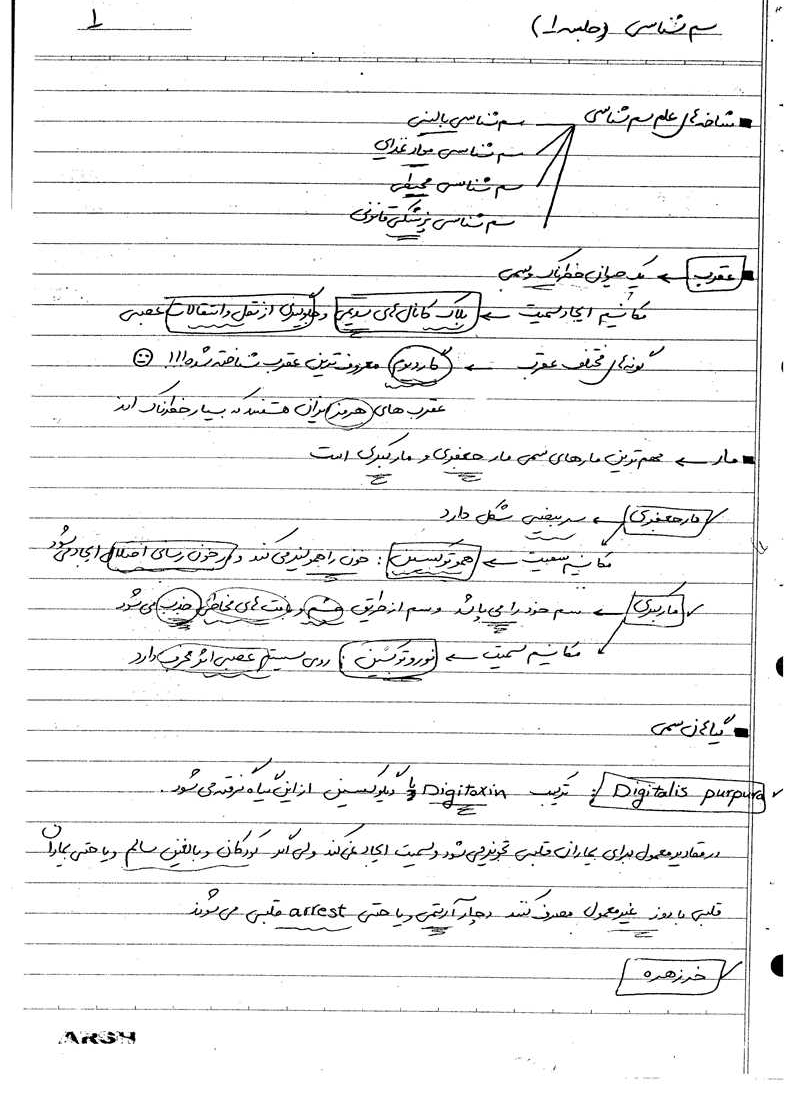 سم شناسی (جلسه ۱)
1
شاخه های علم سم شناسی
سم شناسی بالینی
سم شناسی مواد غذایی
سم شناسی محیطی
سم شناسی پزشکی قانونی
عقرب ← یک حیوان خطرناک و سمی
مکانیسم ایجاد سمیت ← بلاک کانال های سدیمی و جلوگیری از نقل و انتقالات عصبی
گونه های مختلف عقرب ← گاردیوم معروف ترین عقرب شناخته شده!!! ☺
عقرب های هرمز ایران هستند که بسیار خطرناک اند
مار ← مهم ترین مارهای سمی مار جعفری و مار کبری است
مار جعفری ← سر بیضی شکل دارد
مکانیسم سمیت ← هموتوکسین : خون را همولیز می کند و در خون رسانی اختلال ایجاد می شود
مار کبری ← سم خود را می پاشد و سم از طریق چشم و بافت های مخاطی جذب می شود
مکانیسم سمیت ← نوروتوکسین : روی سیستم عصبی اثر مخرب دارد
گیاهان سمی
Digitalis purpura : ترکیب Digitoxin یا دیگوکسین از این گیاه گرفته می شود .
در مقادیر معمول برای بیماران قلبی تجویز می شود و سمیت ایجاد نمی کند ولی اگر کودکان و بالغین سالم و یا حتی بیماران
قلبی با دوز غیر معمول مصرف کنند دچار آریتمی و یا حتی arrest قلبی می شوند
خرزهره
ARSH